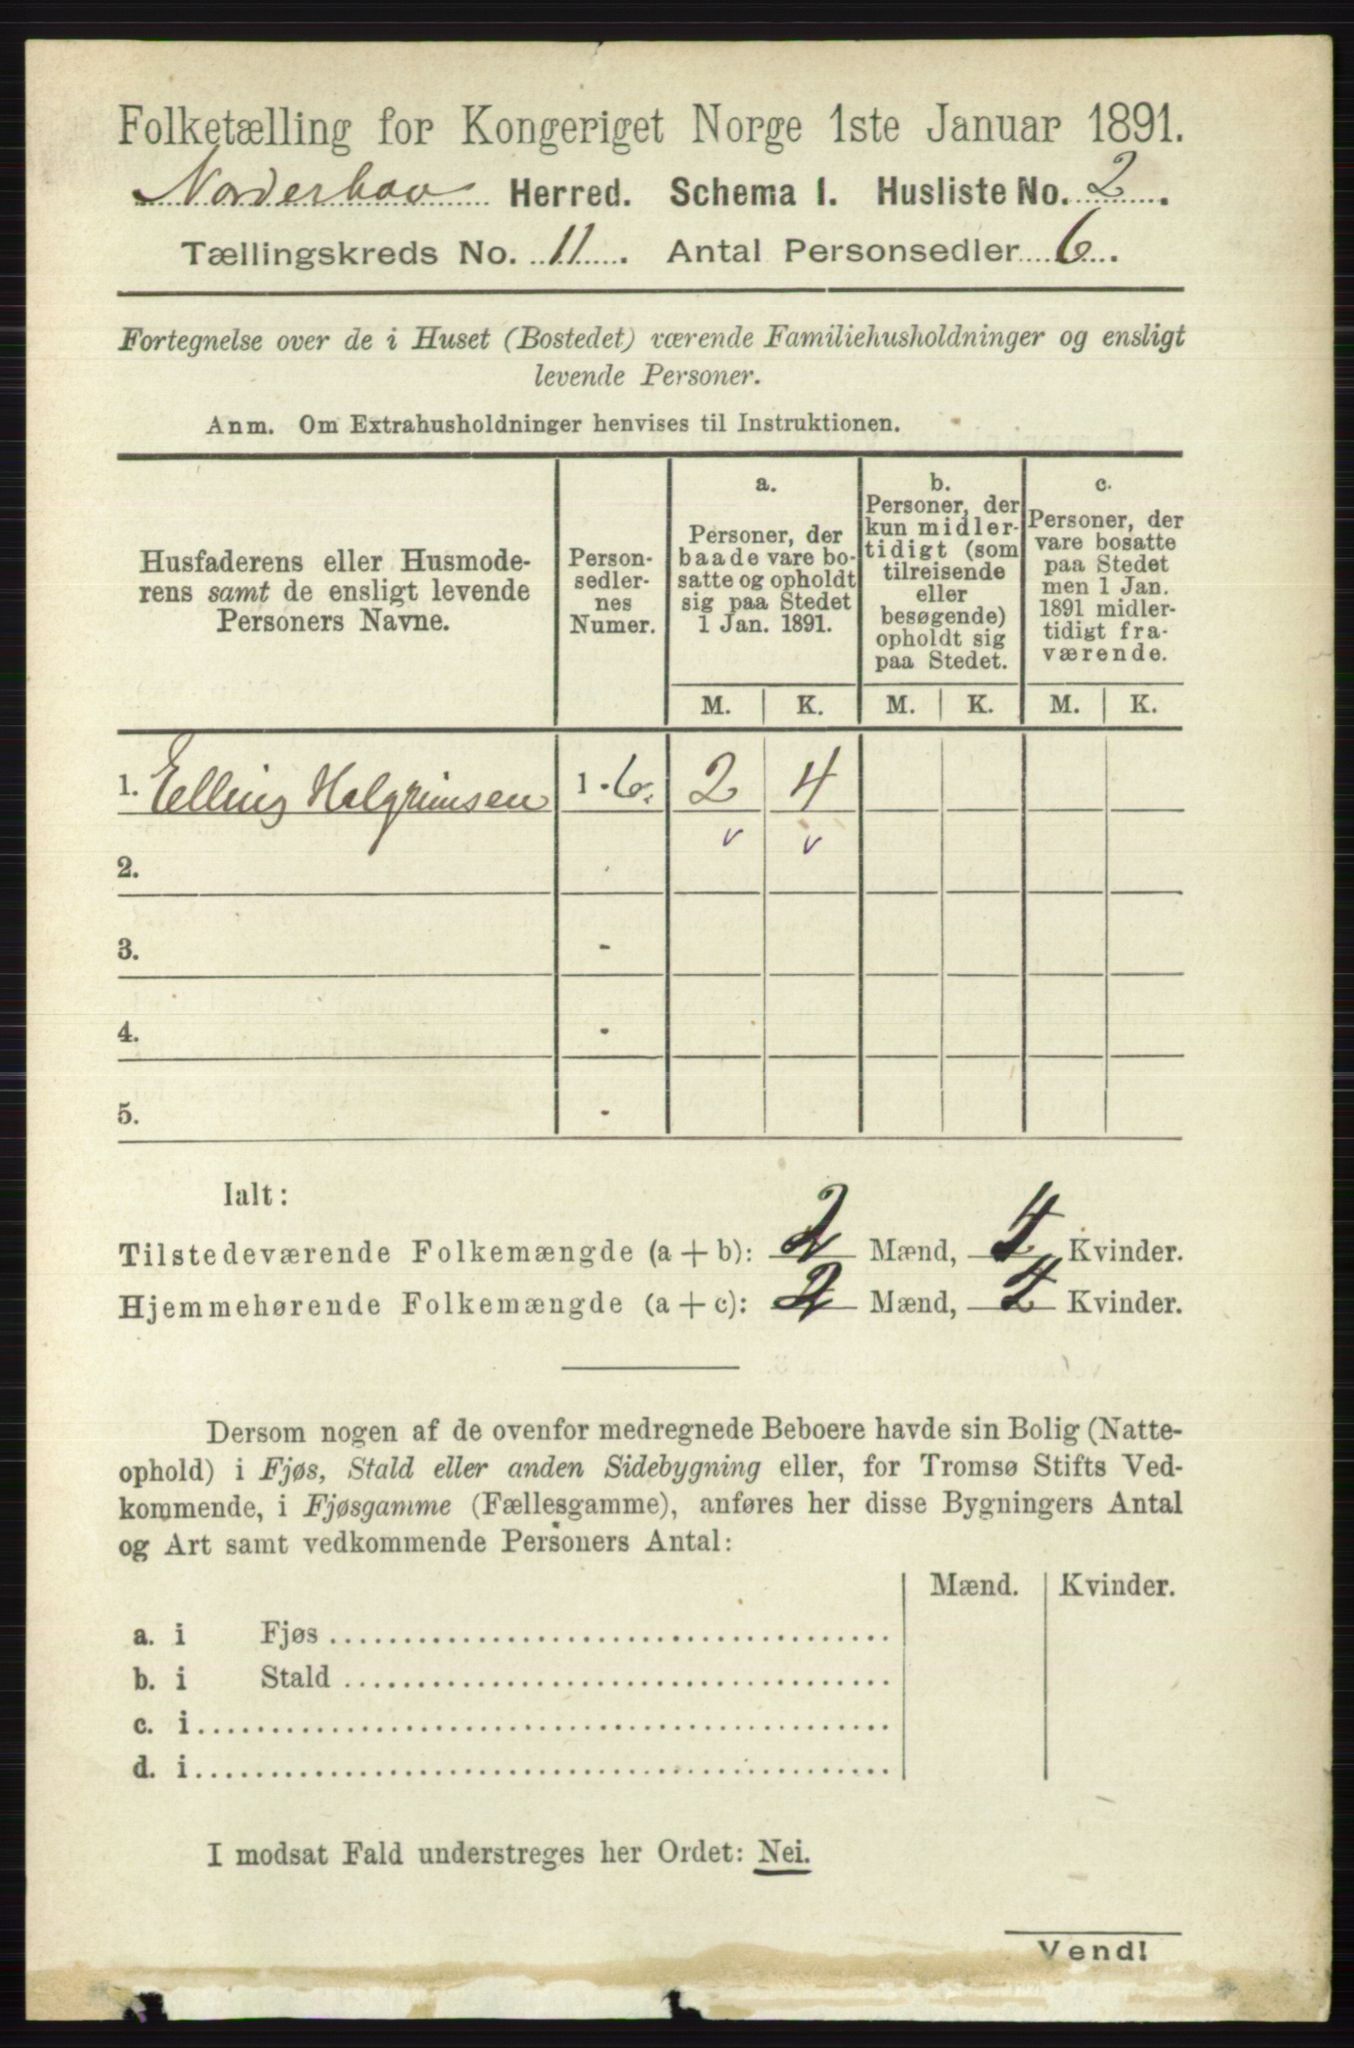 Folketælling for Kongeriget Norge 1ste Januar 1891.
Norderhov Herred. Schema I. Husliste No. 2.
Tællingskreds No. 11. Antal Personsedler 6.
Fortegnelse over de i Huset (Bostedet) værende Familiehusholdninger og ensligt
levende Personer.
Anm. Om Extrahusholdninger henvises til Instruktionen.
Husfaderens eller Husmode-
rens samt de ensligt levende
Personers Navne.
Person-
sedler-
nes
Numer.
a.
Personer, der
baade vare bo-
satte og opholdt
sig paa Stedet
1 Jan. 1891.
b.
Personer, der
kun midler-
tidigt (som
tilreisende
eller
besøgende)
opholdt sig
paa Stedet.
c.
Personer, der
vare bosatte
paa Stedet
men 1 Jan.
1891 midler-
tidigt fra-
værende.
M. K. M. K. M. K.
1. Elling Halgrimsen 1 - 6. 2 4
v v
2.
3. -
4. -
5. -
Ialt:
Tilstedeværende Folkemængde (a + b): 2 Mænd, 4 Kvinder.
Hjemmehørende Folkemængde (a + c): 2 Mænd, 4 Kvinder.
Dersom nogen af de ovenfor medregnede Beboere havde sin Bolig (Natte-
ophold) i Fjøs, Stald eller anden Sidebygning eller, for Tromsø Stifts Ved-
kommende, i Fjøsgamme (Fællesgamme), anføres her disse Bygningers Antal
og Art samt vedkommende Personers Antal:
Mænd. Kvinder.
a. i Fjøs
b. i Stald
c. i
d. i
I modsat Fald understreges her Ordet: Nei.
Vend!